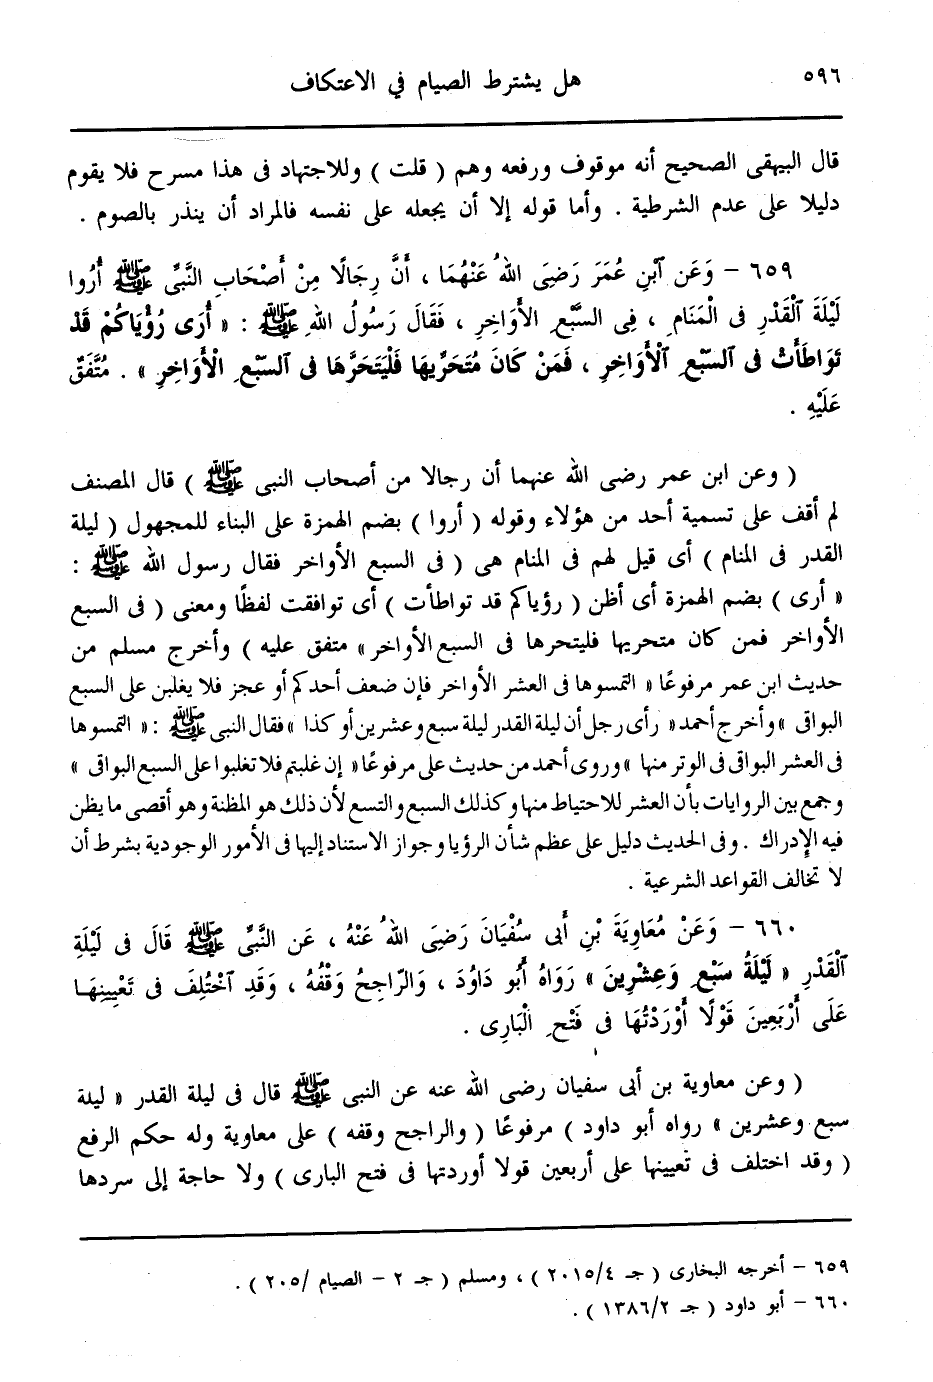 ٥٩٦
هل يشترط الصيام في الاعتكاف
قال البيهقى الصحيح أنه موقوف ورفعه وهم ( قلت ) وللاجتهاد فى هذا مسرح فلا يقوم
دليلا على عدم الشرطية . وأما قوله إلا أن يجعله على نفسه فالمراد أن ينذر بالصوم .
٦٥٩ – وَعَن ٱبْنِ عُمَرَ رَضِىَ اللهُ عَنْهُمَا ، أَنَّ رِجَالًا مِنْ أَصْحَابِ النَّبِىِّ ﷺ أُرُوا
لَيْلَةَ ٱلْقَدْرِ فى الْمَنَامِ ، فِى السَّبْعِ الأَوَاخِرِ ، فَقَالَ رَسُولُ اللهِ ﷺ : « أُرَى رُؤْيَاكُمْ قَدْ
تَوَاطَأَتْ فى ٱلسَّبْعِ ٱلْأَوَاخِرِ ، فَمَنْ كَانَ مُتَحَرِّيهَا فَلْيَتَحَرَّهَا فى ٱلسَّبْعِ الْأَوَاخِرِ » . مُتَّفَقٌ
عَلَيْهِ .
( وعن ابن عمر رضى الله عنهما أن رجالا من أصحاب النبى ﷺ ) قال المصنف
لم أقف على تسمية أحد من هؤلاء وقوله ( أروا ) بضم الهمزة على البناء للمجهول ( ليلة
القدر فى المنام ) أى قيل لهم فى المنام هى ( فى السبع الأواخر فقال رسول الله ﷺ :
« أرى ) بضم الهمزة أى أظن ( رؤياكم قد تواطأت ) أى توافقت لفظًا ومعنى ( فى السبع
الأواخر فمن كان متحريها فليتحرها فى السبع الأواخر » متفق عليه ) وأخرج مسلم من
حديث ابن عمر مرفوعًا « التمسوها فى العشر الأواخر فإن ضعف أحدكم أو عجز فلا يغلبن على السبع
البواقى » وأخرج أحمد « رأى رجل أن ليلة القدر ليلة سبع وعشرين أو كذا » فقال النبى ﷺ : « التمسوها
فى العشر البواقى فى الوتر منها » وروى أحمد من حديث على مرفوعًا « إن غلبتم فلا تغلبوا على السبع البواقى »
وجمع بين الروايات بأن العشر للاحتياط منها وكذلك السبع والتسع لأن ذلك هو المظنة وهو أقصى ما يظن
فيه الإدراك . وفى الحديث دليل على عظم شأن الرؤيا وجواز الاستناد إليها فى الأمور الوجودية بشرط أن
لا تخالف القواعد الشرعية .
٦٦٠ – وَعَنْ مُعَاوِيَةَ بْنِ أَبى سُفْيَانَ رَضِىَ اللهُ عَنْهُ ، عَن النَّبىِّ ﷺ قَالَ فى لَيْلَةِ
ٱلْقَدْرِ « لَيْلَةُ سَبْعٍ وَعِشْرِينَ » رَوَاهُ أَبُو دَاوُدَ ، وَالرَّاجِحُ وَقْفُهُ ، وَقَدِ ٱخْتُلِفَ فى تَعْيِينِهَا
عَلَى أَرْبَعِينَ قَوْلًا أَوْرَدْتُهَا فى فَتْحِ الْبَارِى .
( وعن معاوية بن أبى سفيان رضى الله عنه عن النبى ﷺ قال فى ليلة القدر « ليلة
سبع وعشرين » رواه أبو داود ) مرفوعًا ( والراجح وقفه ) على معاوية وله حكم الرفع
( وقد اختلف فى تعيينها على أربعين قولا أوردتها فى فتح البارى ) ولا حاجة إلى سردها
٦٥٩ – أخرجه البخارى ( جـ ٢٠١٥/٤ ) ، ومسلم ( جـ ٢ – الصيام /٢٠٥ ) .
٦٦٠ – أبو داود ( جـ ١٣٨٦/٢ ) .